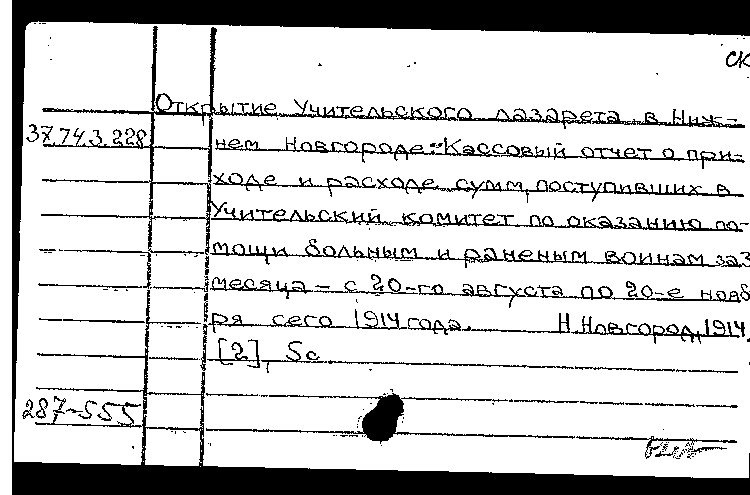 СК
Открытие Учительского лазарета в Ниж-
37.74.3.228
нем Новгороде. Кассовый отчет о при-
ходе и расходе сумм, поступивших в
Учительский комитет по оказанию по-
мощи больным и раненым воинам за 3
месяца – с 20-го августа по 20-е нояб
ря сего 1914 года. Н.Новгород, 1914.
[2], 5с
287-555